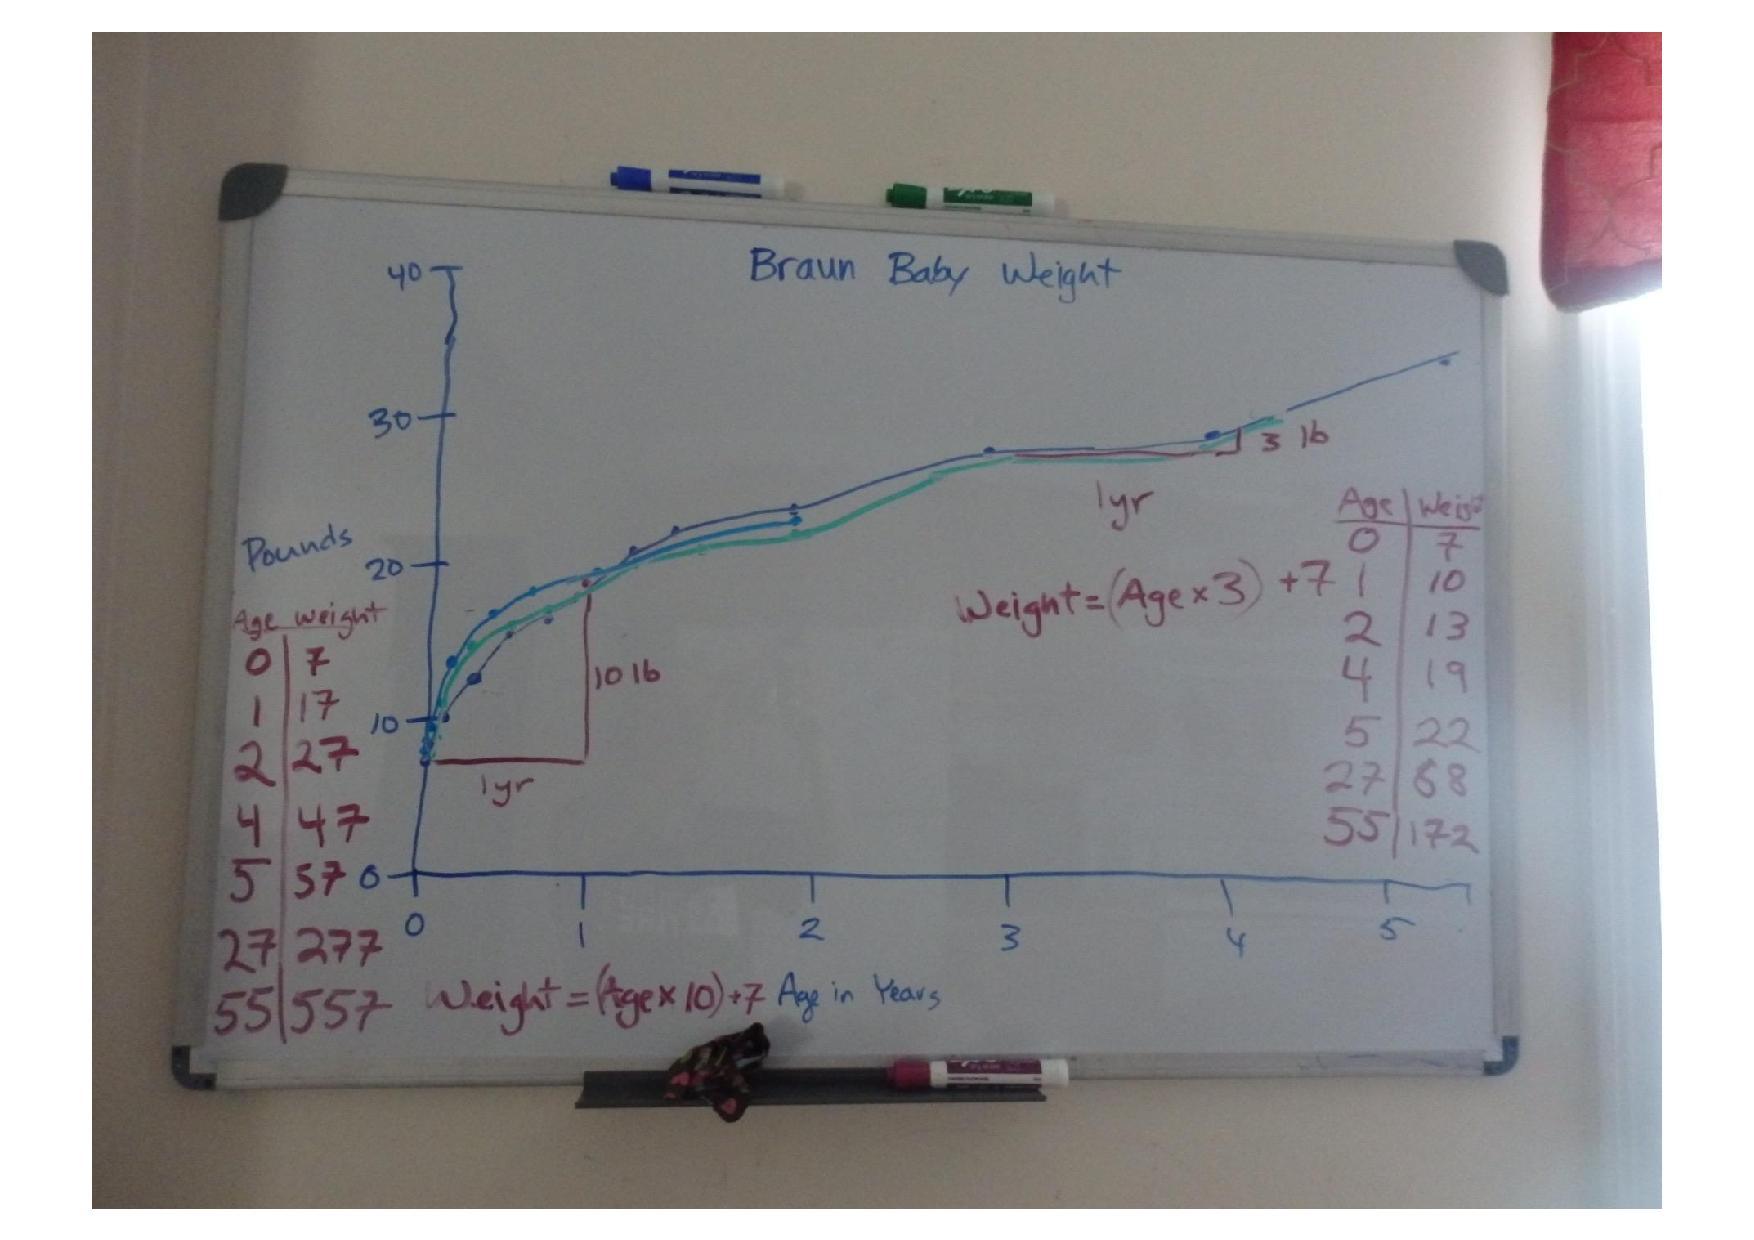 Braun Baby Weight
40
30
20
10
0
Pounds
0 1 2 3 4 5
Age in Years
10 lb
1yr
3 lb
1yr
Age weight
0 7
1 17
2 27
4 47
5 57
27 277
55 557
Weight = (Age x 10) +7
Weight = (Age x 3) +7
Age Weight
0 7
1 10
2 13
4 19
5 22
27 88
55 172